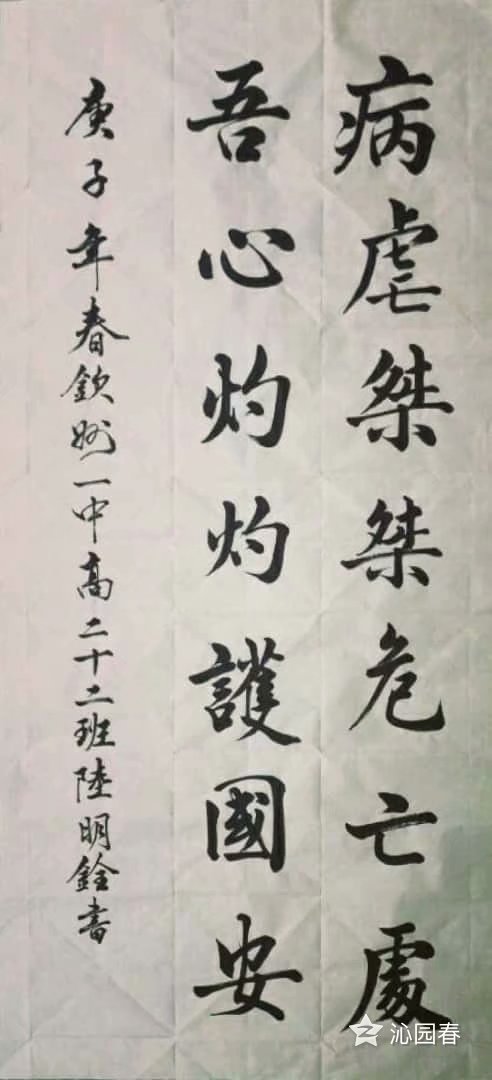 病虐桀桀危亡處
吾心灼灼護國安
庚子年春欽州一中高二十二班陸明銓書
沁园春